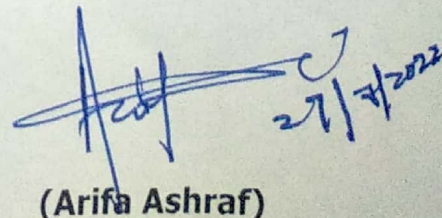 27/7/2022
(Arifa Ashraf)